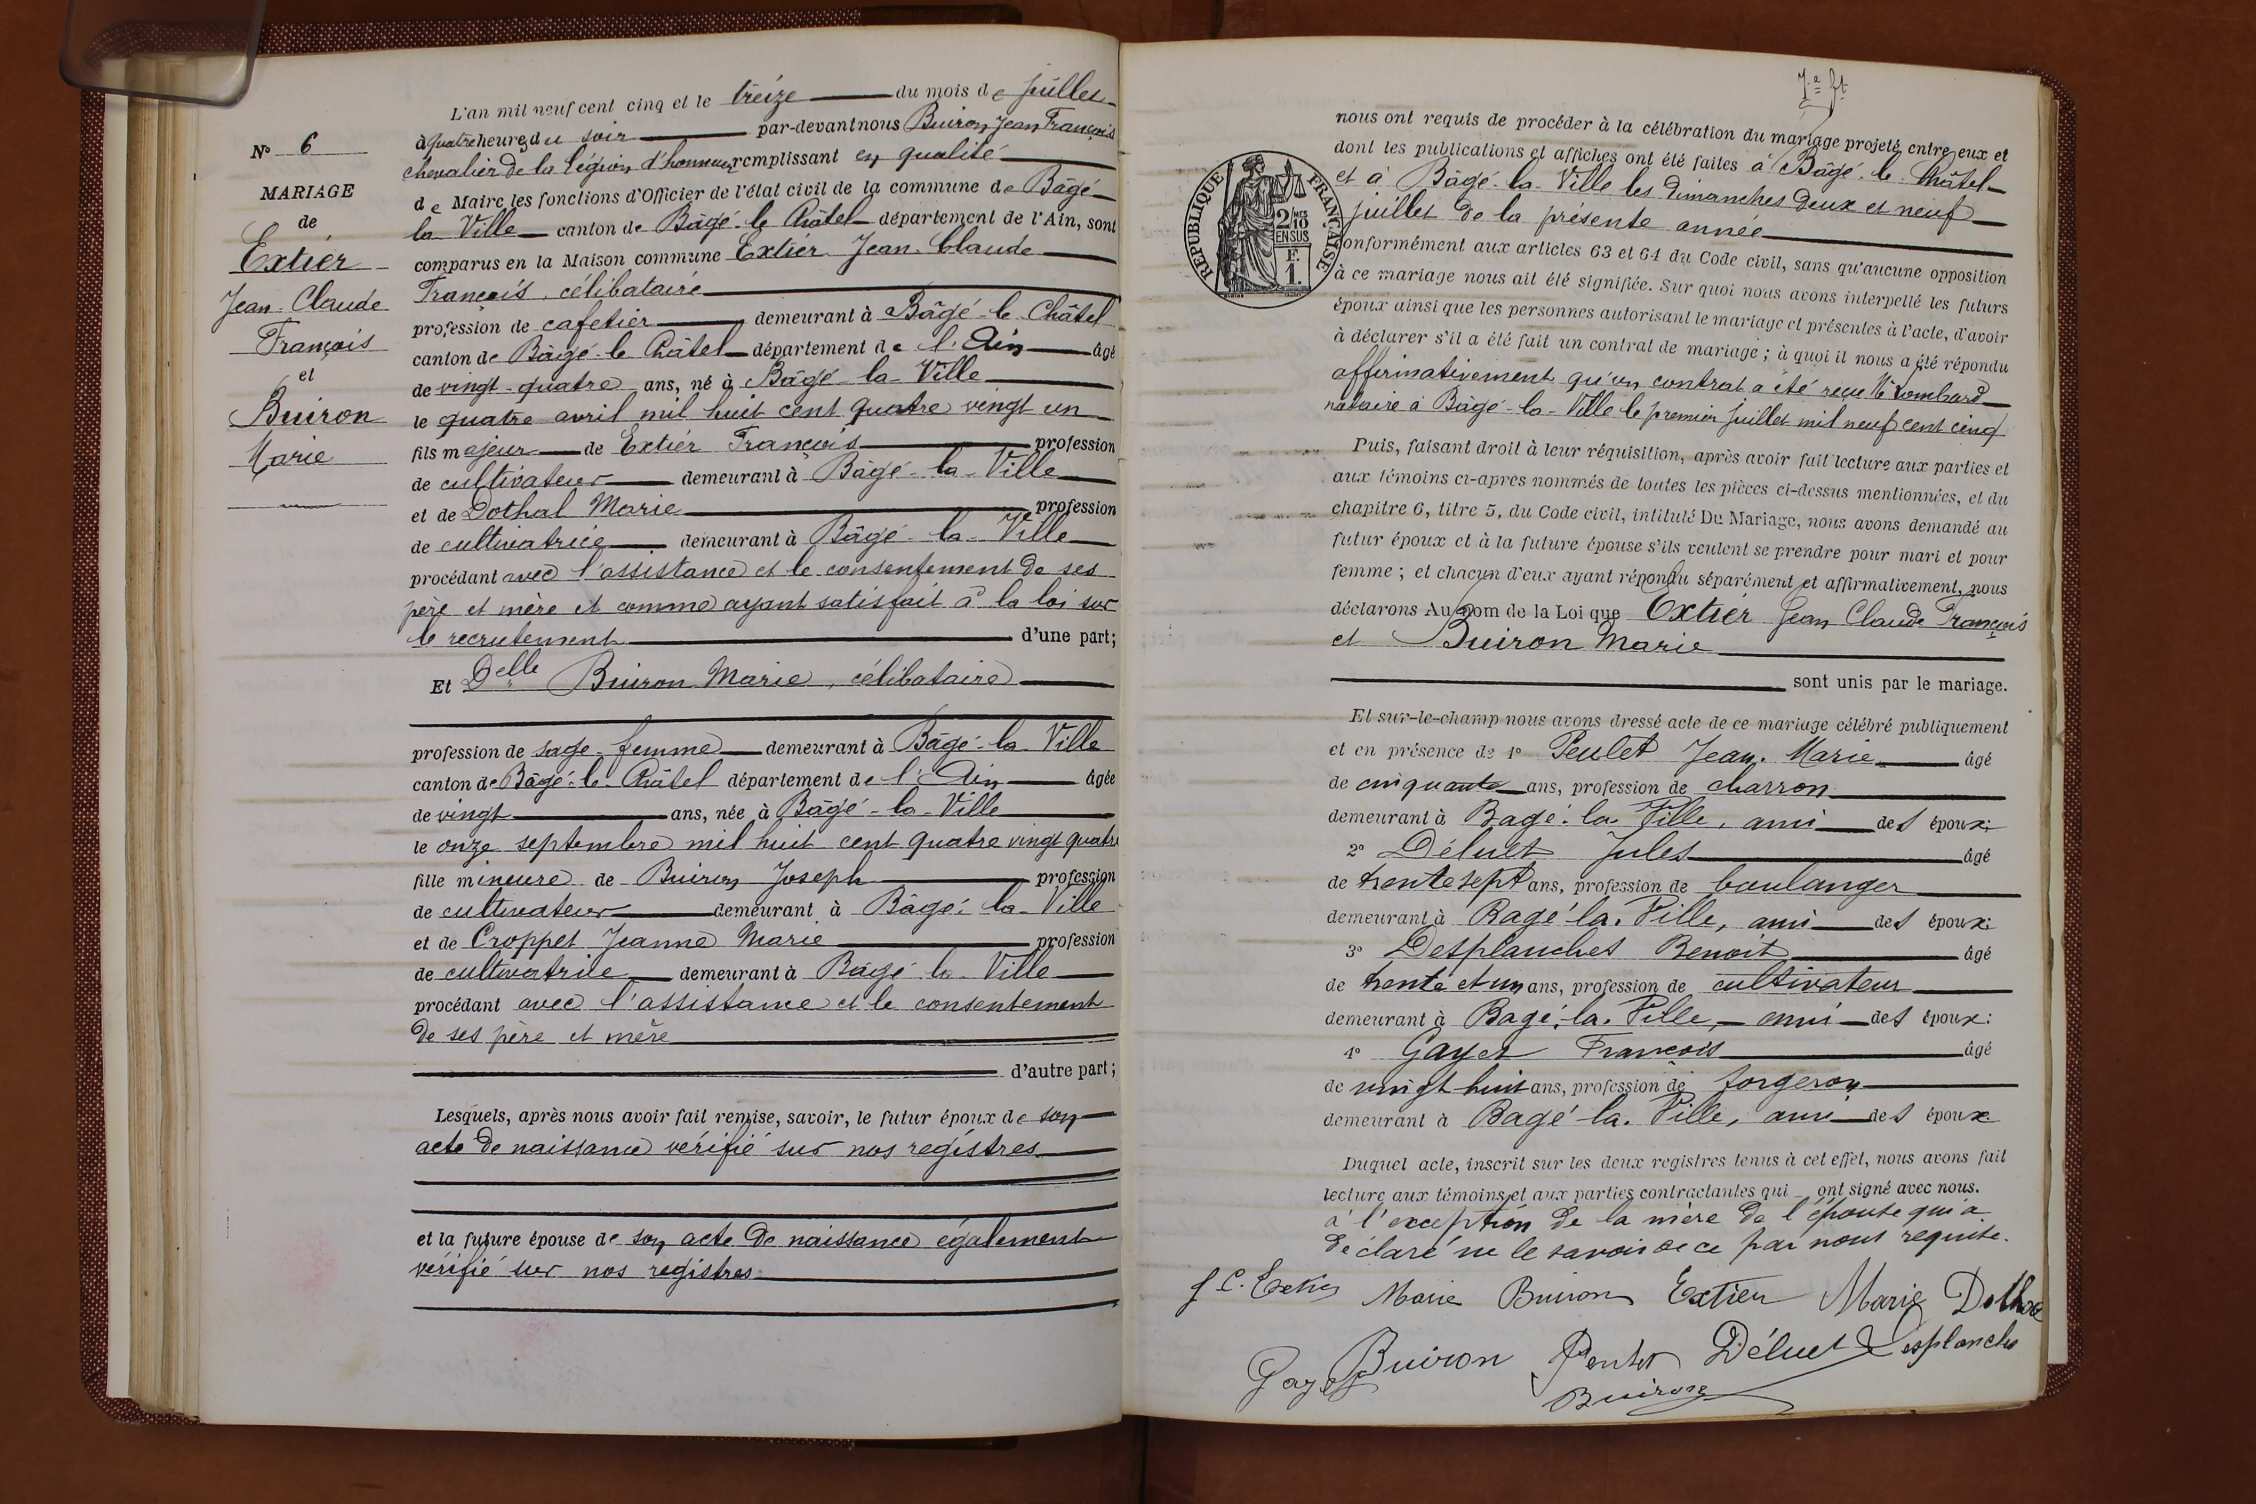 L'an mil neuf cent cinq et le treize du mois de juillet
à quatre heures du soir par-devant nous Buiron Jean François
chevalier de la légion d'honneur remplissant en qualité
de Maire les fonctions d'Officier de l'état civil de la commune de Bâgé-
la Ville canton de Bâgé-le Châtel département de l'Ain, sont
comparus en la Maison commune Extier Jean-Claude
François, célibataire
profession de cafetier demeurant à Bâgé-le-Châtel
canton de Bâgé-le Châtel département de l'Ain âgé
de vingt-quatre ans, né à Bâgé-la-Ville
le quatre avril mil huit cent quatre vingt un
fils majeur de Extier François profession
de cultivateur demeurant à Bâgé-la-Ville
et de Dothal Marie profession
de cultivatrice demeurant à Bâgé-la-Ville
procédant avec l'assistance et le consentement de ses
père et mère et comme ayant satisfait à la loi sur
le recrutement d'une part;
Et Delle Buiron Marie, célibataire
profession de sage-femme demeurant à Bâgé-la Ville
canton de Bâgé-le-Châtel département de l'Ain âgée
de vingt ans, née à Bâgé-la-Ville
le onze septembre mil huit cent quatre vingt quatre
fille mineure de Buiron Joseph profession
de cultivateur demeurant à Bâgé-la-Ville
et de Croppet Jeanne Marie profession
de cultivatrice demeurant à Bâgé-la-Ville
procédant avec l'assistance et le consentement
de ses père et mère
d'autre part;
Lesquels, après nous avoir fait remise, savoir, le futur époux de son
acte de naissance vérifié sur nos registres
et la future épouse de son acte de naissance également
vérifié sur nos registres
N° 6
MARIAGE
de
Extier
Jean-Claude
François
et
Buiron
Marie
nous ont requis de procéder à la célébration du mariage projeté entre eux et
dont les publications et affiches ont été faites à Bâgé-le-Châtel
et à Bâgé-la-Ville les dimanches deux et neuf
juillet de la présente année
conformément aux articles 63 et 64 du Code civil, sans qu'aucune opposition
à ce mariage nous ait été signifiée. Sur quoi nous avons interpellé les futurs
époux ainsi que les personnes autorisant le mariage et présentes à l'acte, d'avoir
à déclarer s'il a été fait un contrat de mariage; à quoi il nous a été répondu
affirmativement qu'un contrat a été reçu Me Lombard
notaire à Bâgé-la-Ville le premier juillet mil neuf cent cinq
Puis, faisant droit à leur réquisition, après avoir fait lecture aux parties et
aux témoins ci-après nommés de toutes les pièces ci-dessus mentionnées, et du
chapitre 6, titre 5, du Code civil, intitulé Du Mariage, nous avons demandé au
futur époux et à la future épouse s'ils veulent se prendre pour mari et pour
femme; et chacun d'eux ayant répondu séparément et affirmativement, nous
déclarons Au nom de la Loi que Extier Jean Claude François
et Buiron Marie
sont unis par le mariage.
Et sur-le-champ nous avons dressé acte de ce mariage célébré publiquement
et en présence de 1° Peulet Jean-Marie âgé
de cinquante ans, profession de charron
demeurant à Bagé-la-Ville, ami des époux;
2° Déluet Jules âgé
de trente sept ans, profession de boulanger
demeurant à Bagé la-Ville, ami des époux;
3° Desplanches Benoit âgé
de trente et un ans, profession de cultivateur
demeurant à Bagé-la-Ville, ami des époux:
4° Gayet François âgé
de vingt huit ans, profession de forgeron
demeurant à Bagé la-Ville, ami des époux
Duquel acte, inscrit sur les deux registres tenus à cet effet, nous avons fait
lecture aux témoins et aux parties contractantes qui ont signé avec nous.
à l'exception de la mère de l'épouse qui a
déclaré ne le savoir de ce par nous requise.
J C. Extier Marie Buiron Extier Marie Dothal
Gayet Buiron Peulet Déluet Desplanches
Buiron
REPUBLIQUE FRANÇAISE
2/10 MES
EN SUS
F.
1.